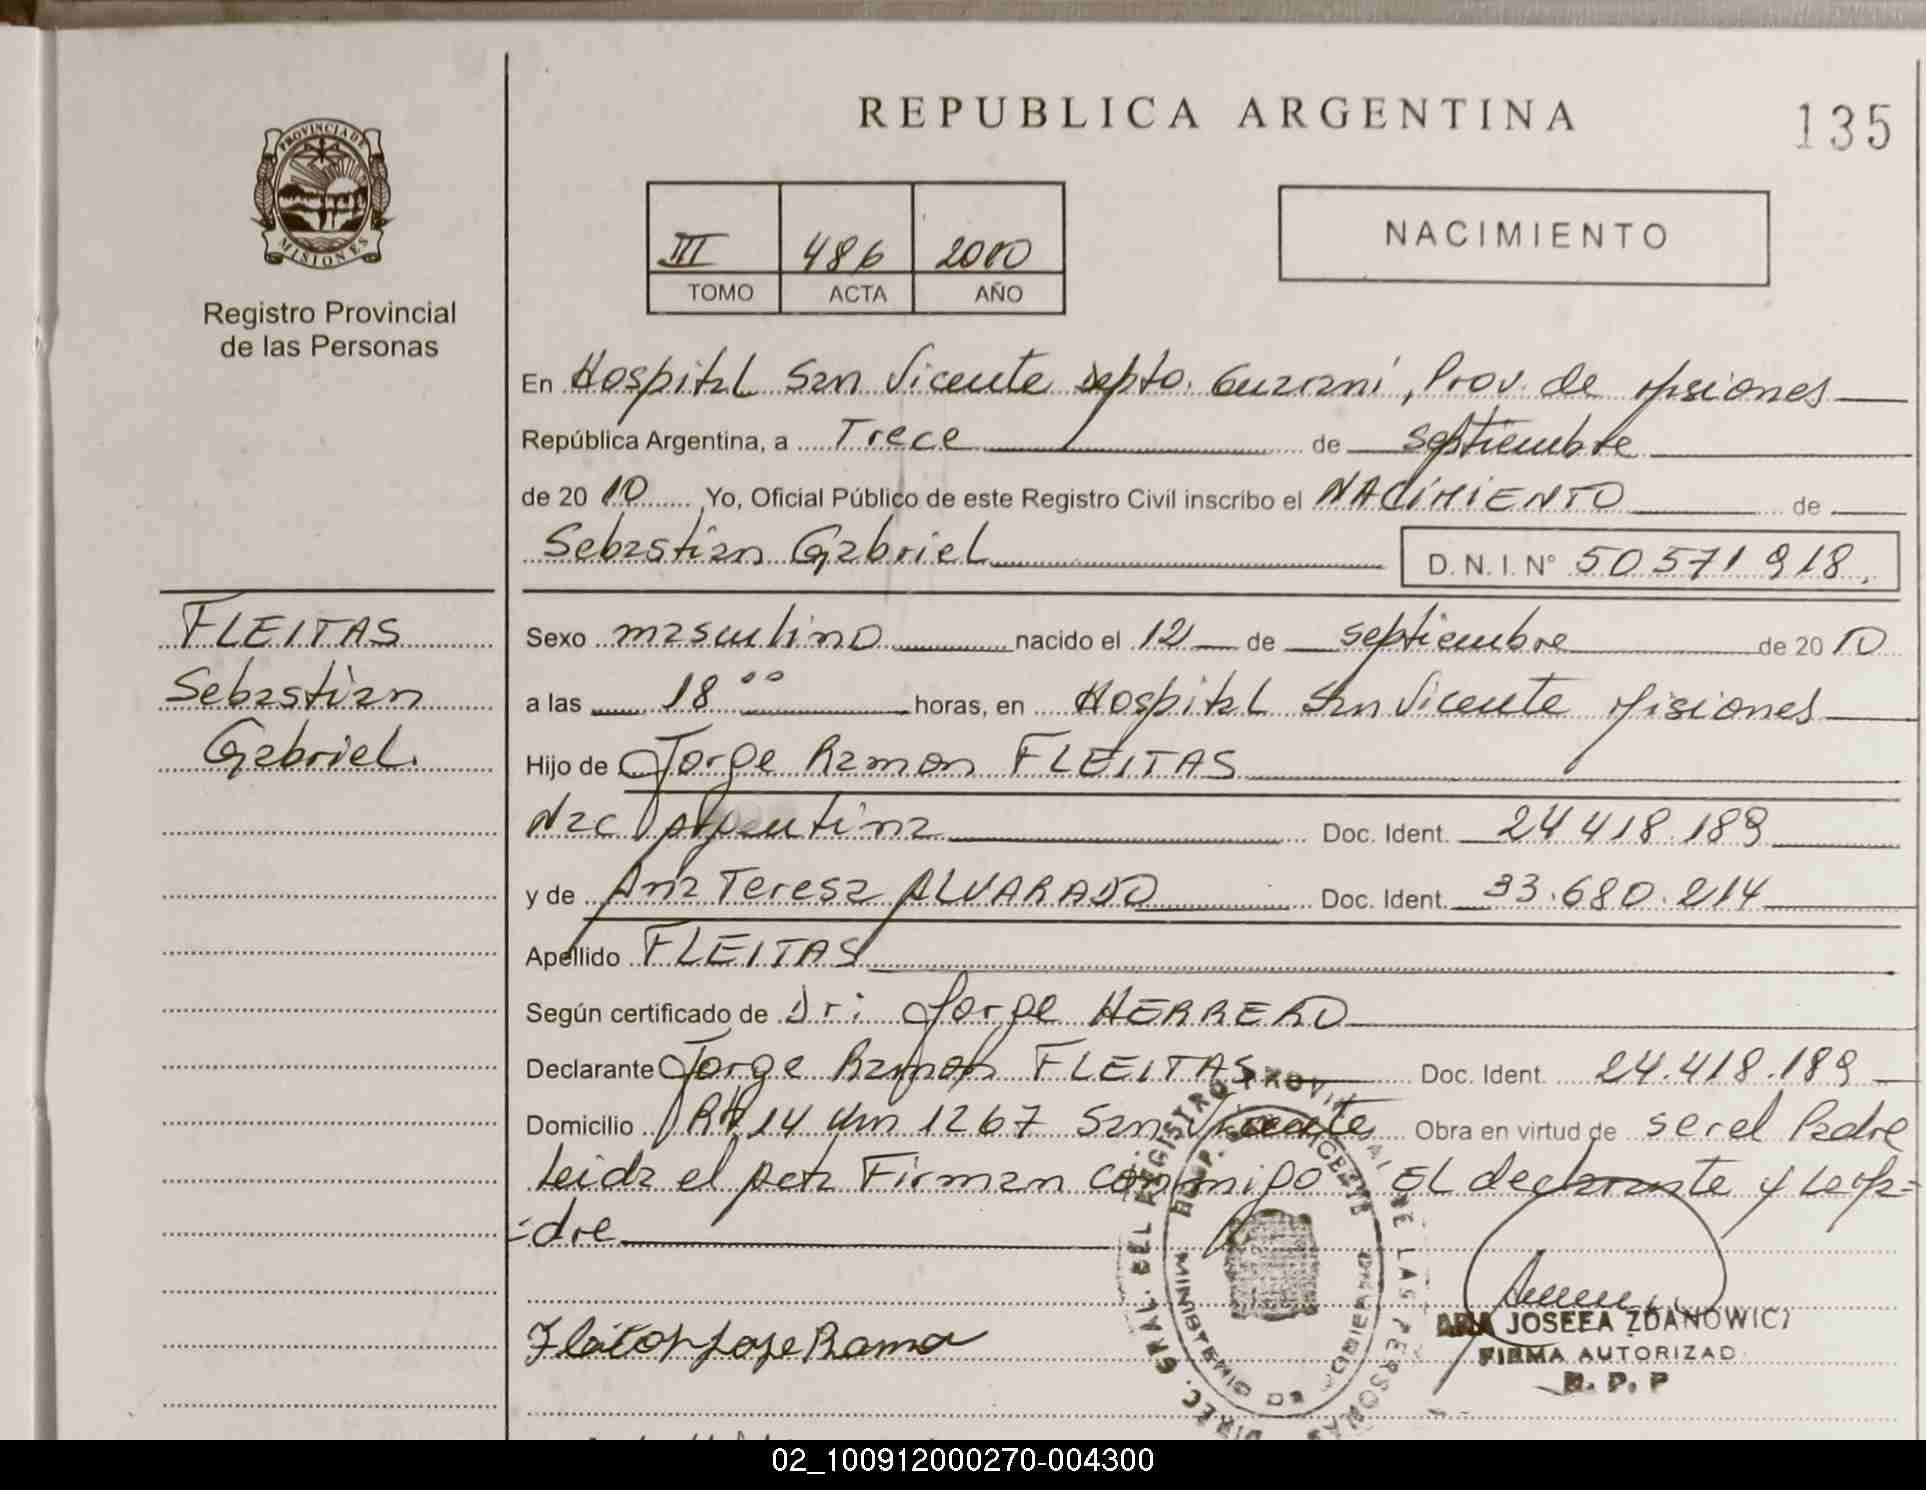 REPUBLICA ARGENTINA
135
PROVINCIA DE
MISIONES
Registro Provincial
de las Personas
III 486 2010
TOMO ACTA AÑO
NACIMIENTO
En Hospital San Vicente Depto. Guarani, Prov. de Misiones
República Argentina, a Trece de septiembre
de 2010 Yo, Oficial Público de este Registro Civil inscribo el NACIMIENTO de
Sebastian Gabriel D. N. I. N° 50 571 918.
FLEITAS
Sebastian
Gabriel.
Sexo masculino nacido el 12 de septiembre de 2010
a las 18 00 horas, en Hospital San Vicente Misiones
Hijo de Jorge Ramon FLEITAS
Nac Argentina Doc. Ident. 24 418.189
y de Ana Teresa ALVARADO Doc. Ident. 33.680.214
Apellido FLEITAS
Según certificado de Dr: Jorge HERRERO
Declarante Jorge Ramon FLEITAS Doc. Ident. 24.418.189
Domicilio 14 Km 1267 San Vicente Obra en virtud de ser el Padre
Leida el Acta Firman conmigo EL declarante y La Ma=
=dre
DIREC. GRAL. DEL REGISTRO PROVINCIAL DE LAS PERSONAS
JOSEFA ZDANOWICZ
FIRMA AUTORIZAD
R. P. P
02_100912000270-004300